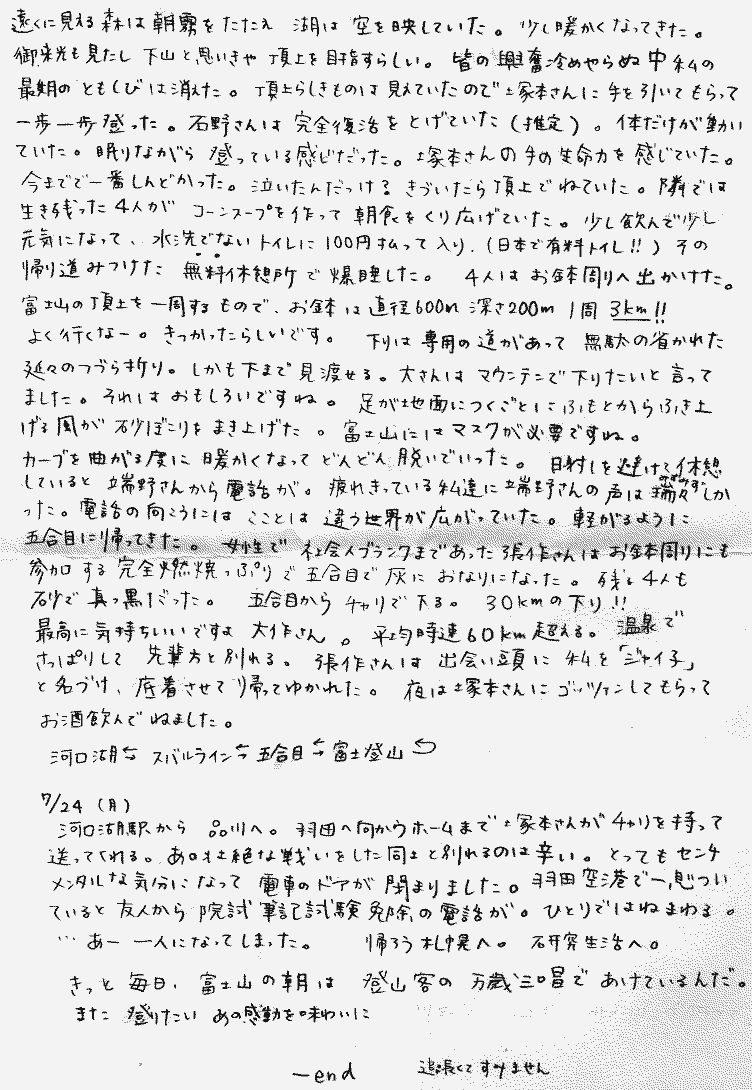 遠くに見える森は朝霧をたたえ 湖は空を映していた。少し暖かくなってきた。
御来光も見たし下山と思いきや頂上を目指すらしい。皆の興奮冷めやらぬ中私の
最期のともしびは消えた。頂上らしきものは見えていたので塚本さんに手を引いてもらって
一歩一歩登った。石野さんは完全復活をとげていた(推定)。体だけが動い
ていた。眠りながら登っている感じだった。塚本さんの手の生命力を感じていた。
今までで一番しんどかった。泣いたんだっけ? きづいたら頂上でねていた。隣では
生き残った4人がコーンスープを作って朝食をくり広げていた。少し飲んで少し
元気になって、水洗でないトイレに100円払って入り、(日本で有料トイレ!!) その
帰り道みつけた 無料休憩所で爆睡した。 4人はお鉢周りへ出かけた。
富士山の頂上を一周するもので、お鉢は直径600m 深さ200m 1周 3km!!
よく行くなー。きつかったらしいです。 下りは専用の道があって 無駄の省かれた
延々のつづら折り。しかも下まで見渡せる。大さんはマウンテンで下りたいと言って
ました。それはおもしろいですね。足が地面につくごとにふもとからふき上
げる風が砂ぼこりをまき上げた。富士山にはマスクが必要ですね。
カーブを曲がる度に暖かくなってどんどん脱いでいった。日射しを避けて休憩
していると端野さんから電話が。疲れきっている私達に端野さんの声は瑞々しか
みずみず
った。電話の向こうにはここはと違う世界が広がっていた。軽がるように
五合目に帰ってきた。女性で社会人ブランクまであった張作さんはお鉢周りにも
参加する完全燃焼っぷりで五合目で灰におなりになった。残る4人も
砂で真っ黒だった。 五合目からチャリで下る。30kmの下り!!
最高に気持ちいいですよ 大作さん。平均時速60km超える。温泉で
さっぱりして 先輩方と別れる。張作さんは出会い頭に私を「ジャイ子」
と名づけ、定着させて帰ってゆかれた。夜は塚本さんにゴッツァンしてもらって
お酒飲んでねました。
河口湖⇆スバルライン⇆五合目⇆富士登山

7/24 (月)
河口湖駅から 品川へ。羽田へ向かうホームまで塚本さんがチャリを持って
送ってくれる。あの壮絶な戦いをした同士と別れるのは辛い。とってもセンチ
メンタルな気分になって電車のドアが閉まりました。羽田空港で一息つい
ていると友人から院試筆記試験免除の電話が。ひとりではねまわる。
… あー 一人になってしまった。 帰ろう札幌へ。研究生活へ。
きっと毎日、富士山の朝は 登山客の 万歳三唱で あけているんだ。
また登りたい あの感動を味わいに
—end 追.長くてすみません